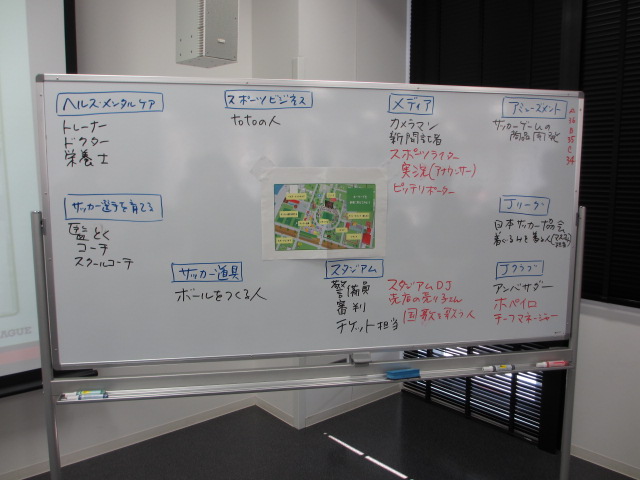 ヘルス・メンタルケア
トレーナー
ドクター
栄養士
スポーツビジネス
totoの人
メディア
カメラマン
新聞記者
スポーツライター
実況(アナウンサー)
ピッチリポーター
アミューズメント
サッカーゲームの
サッカー選手を育てる
監とく
コーチ
スクールコーチ
サッカー道具
ボールをつくる人
スタジアム
警備員
審判
チケット担当
スタジアムDJ
売店の売り子さん
国歌を歌う人
Jリーグ
日本サッカー協会
Jクラブ
アンバサダー
ホペイロ
チーフマネージャー